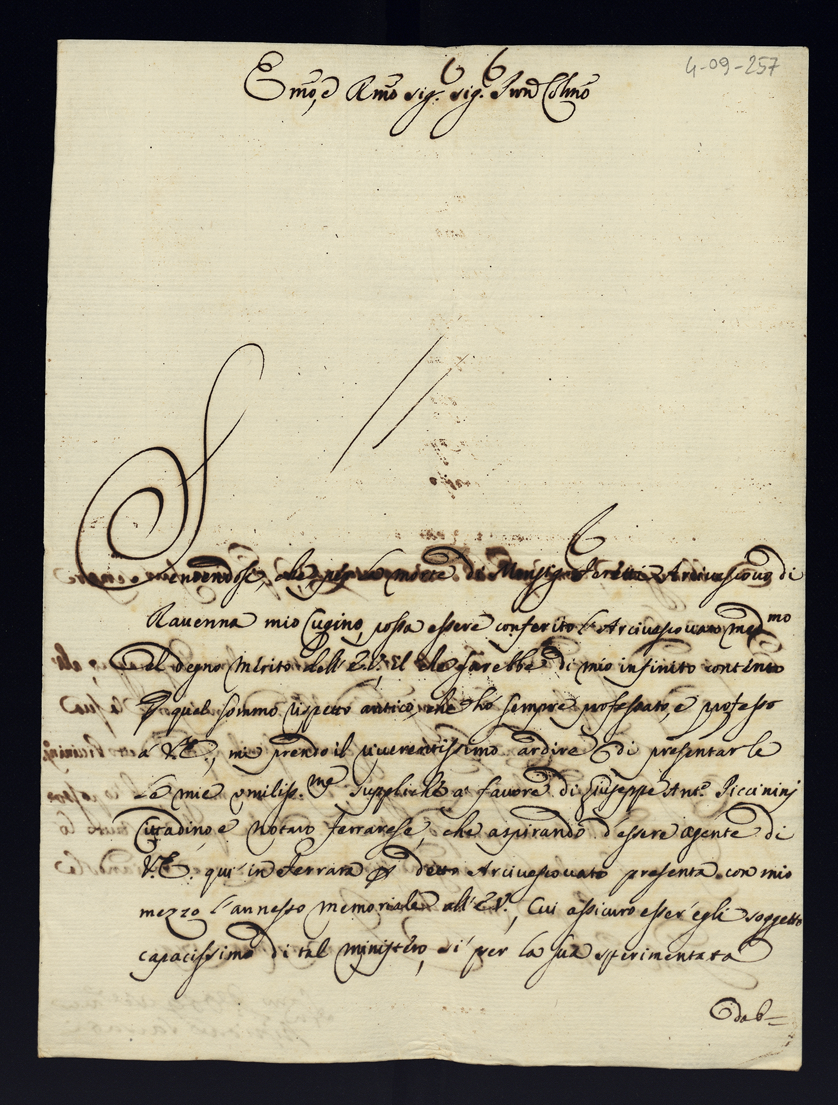 4-09-257
Emo, e Rmo sig. sig. Prōn Colmo
Sentendosi, che per la morte di Monsig. Feretti Arcivescovo di
Ravenna mio Cugino, possa essere conferito l'Arcivescovato medmo
al degno merito dell'E.V., il che sarebbe di mio infinito contento
p quel sommo rispetto antico, che hò sempre professato, e professo
a V.E., mi prendo il riverentissimo ardire di presentarle
le mie umiliss.me suppliche a favore di Giuseppe Ant.o Piccinini
Cittadino, e Notaro Ferrarese, che aspirando d'essere Agente di
V.E. qui in Ferrara p detto Arcivescovato presenta con mio
mezzo l'annesso memoriale all'E.V., Cui assicuro esser egli soggetto
capacissimo di tal ministero, sì per la sua esperimentata
dab=